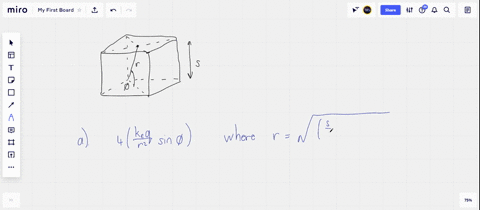 miro My First Board Share
r
S
Ø
a) 4(kₑq/r² sin Ø) where r = √((s/
75%